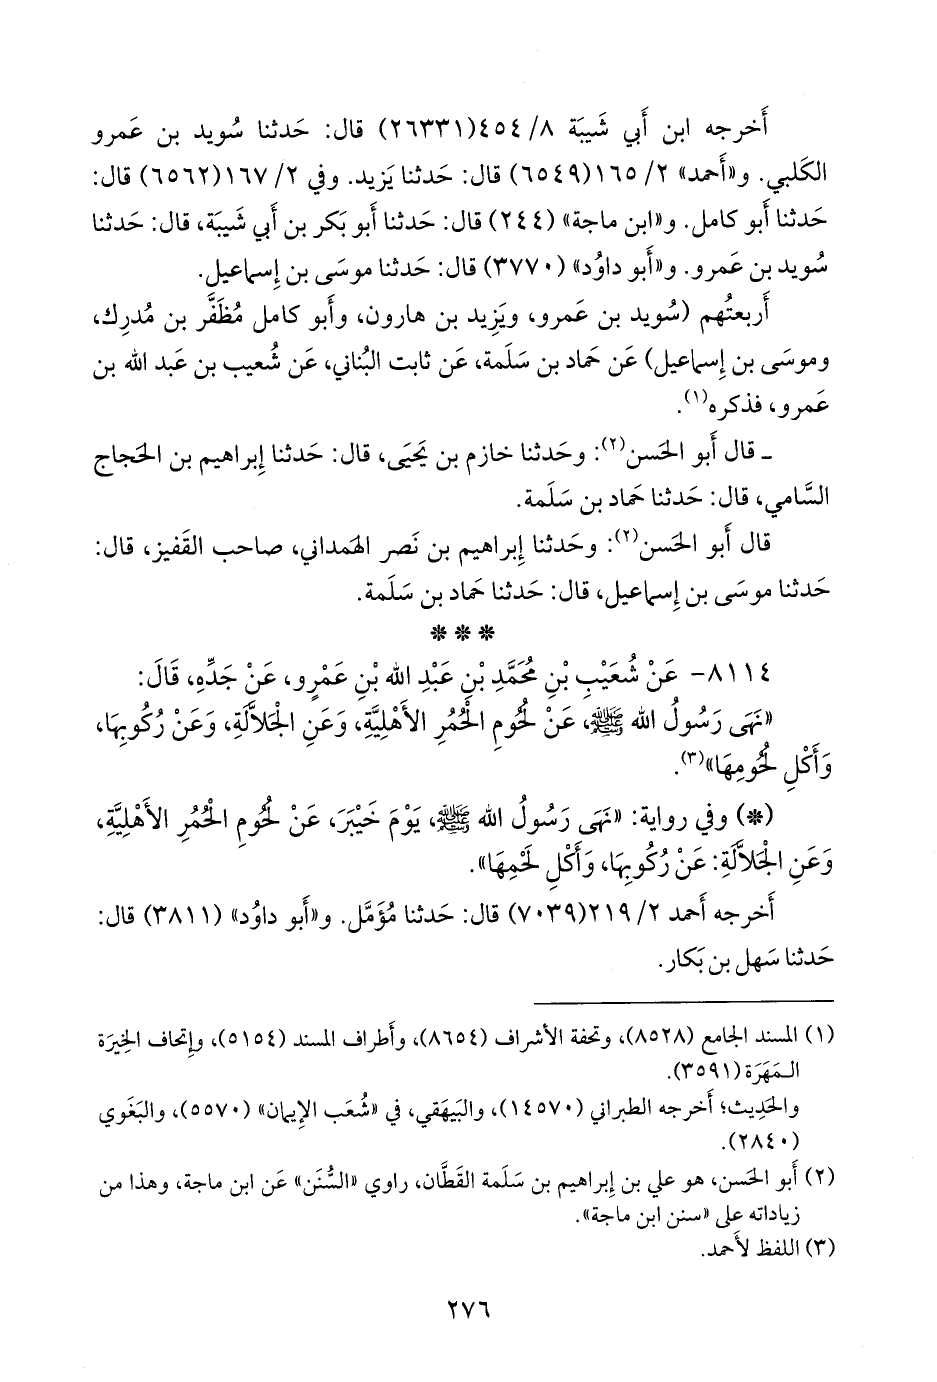 أَخرجه ابن أَبي شَيبَة ٨/ ٤٥٤(٢٦٣٣١) قال: حَدثنا سُويد بن عَمرو
الكَلبي. و«أَحمد» ٢/ ١٦٥(٦٥٤٩) قال: حَدثنا يَزيد. وفي ٢/ ١٦٧(٦٥٦٢) قال:
حَدثنا أَبو كامل. و«ابن ماجة» (٢٤٤) قال: حَدثنا أَبو بَكر بن أَبي شَيبَة، قال: حَدثنا
سُويد بن عَمرو. و«أَبو داوُد» (٣٧٧٠) قال: حَدثنا موسَى بن إِسماعيل.
أَربعتُهم (سُويد بن عَمرو، ويَزِيد بن هارون، وأَبو كامل مُظَفَّر بن مُدرِك،
وموسَى بن إِسماعيل) عَن حَماد بن سَلَمة، عَن ثابت البُناني، عَن شُعيب بن عَبد الله بن
عَمرو، فذكره(١).
ـ قال أَبو الحَسن(٢): وحَدثنا خازم بن يَحيَى، قال: حَدثنا إِبراهيم بن الحَجاج
السَّامي، قال: حَدثنا حَماد بن سَلَمة.
قال أَبو الحَسن(٢): وحَدثنا إِبراهيم بن نَصر الهَمداني، صاحب القَفيز، قال:
حَدثنا موسَى بن إِسماعيل، قال: حَدثنا حَماد بن سَلَمة.
* * *
٨١١٤- عَنْ شُعَيْبِ بْنِ مُحَمَّدِ بْنِ عَبْدِ الله بْنِ عَمْرٍو، عَنْ جَدِّهِ، قَالَ:
«نَهَى رَسُولُ الله ﷺ، عَنْ لُحُومِ الْحُمُرِ الأَهْلِيَّةِ، وَعَنِ الْجَلاَّلَةِ، وَعَنْ رُكُوبِهَا،
وَأَكْلِ لُحُومِهَا»(٣).
(*) وفي رواية: «نَهَى رَسُولُ الله ﷺ، يَوْمَ خَيْبَرَ، عَنْ لُحُومِ الْحُمُرِ الأَهْلِيَّةِ،
وَعَنِ الْجَلاَّلَةِ: عَنْ رُكُوبِهَا، وَأَكْلِ لَحْمِهَا».
أَخرجه أَحمد ٢/ ٢١٩(٧٠٣٩) قال: حَدثنا مُؤَمَّل. و«أَبو داوُد» (٣٨١١) قال:
حَدثنا سَهل بن بَكار.
(١) المسند الجامع (٨٥٢٨)، وتحفة الأشراف (٨٦٥٤)، وأَطراف المسند (٥١٥٤)، وإِتحاف الخِيرَة
المَهَرَة (٣٥٩١).
والحَدِيث؛ أَخرجه الطبراني (١٤٥٧٠)، والبَيهَقي، في «شُعَب الإِيمان» (٥٥٧٠)، والبَغَوي
(٢٨٤٠).
(٢) أَبو الحَسن، هو علي بن إِبراهيم بن سَلَمة القَطَّان، راوي «السُّنَن» عَن ابن ماجة، وهذا من
زياداته على «سنن ابن ماجة».
(٣) اللفظ لأَحمد.
٢٧٦